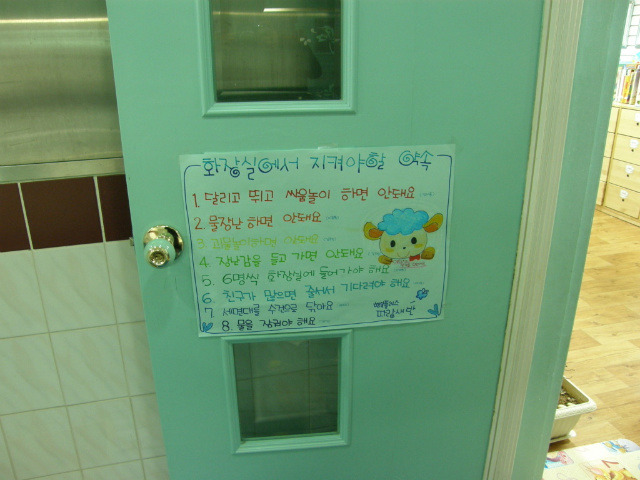 화장실에서 지켜야할 약속
1. 달리고 뛰고 싸움놀이 하면 안돼요
2. 물장난 하면 안돼요
3. 괴물놀이하면 안돼요
4. 장난감을 들고 가면 안돼요
5. 6명씩 화장실에 들어가야 해요
6. 친구가 많으면 줄서서 기다려야 해요
7. 세면대를 수건으로 닦아요
8. 물을 잠궈야 해요
파랑새반